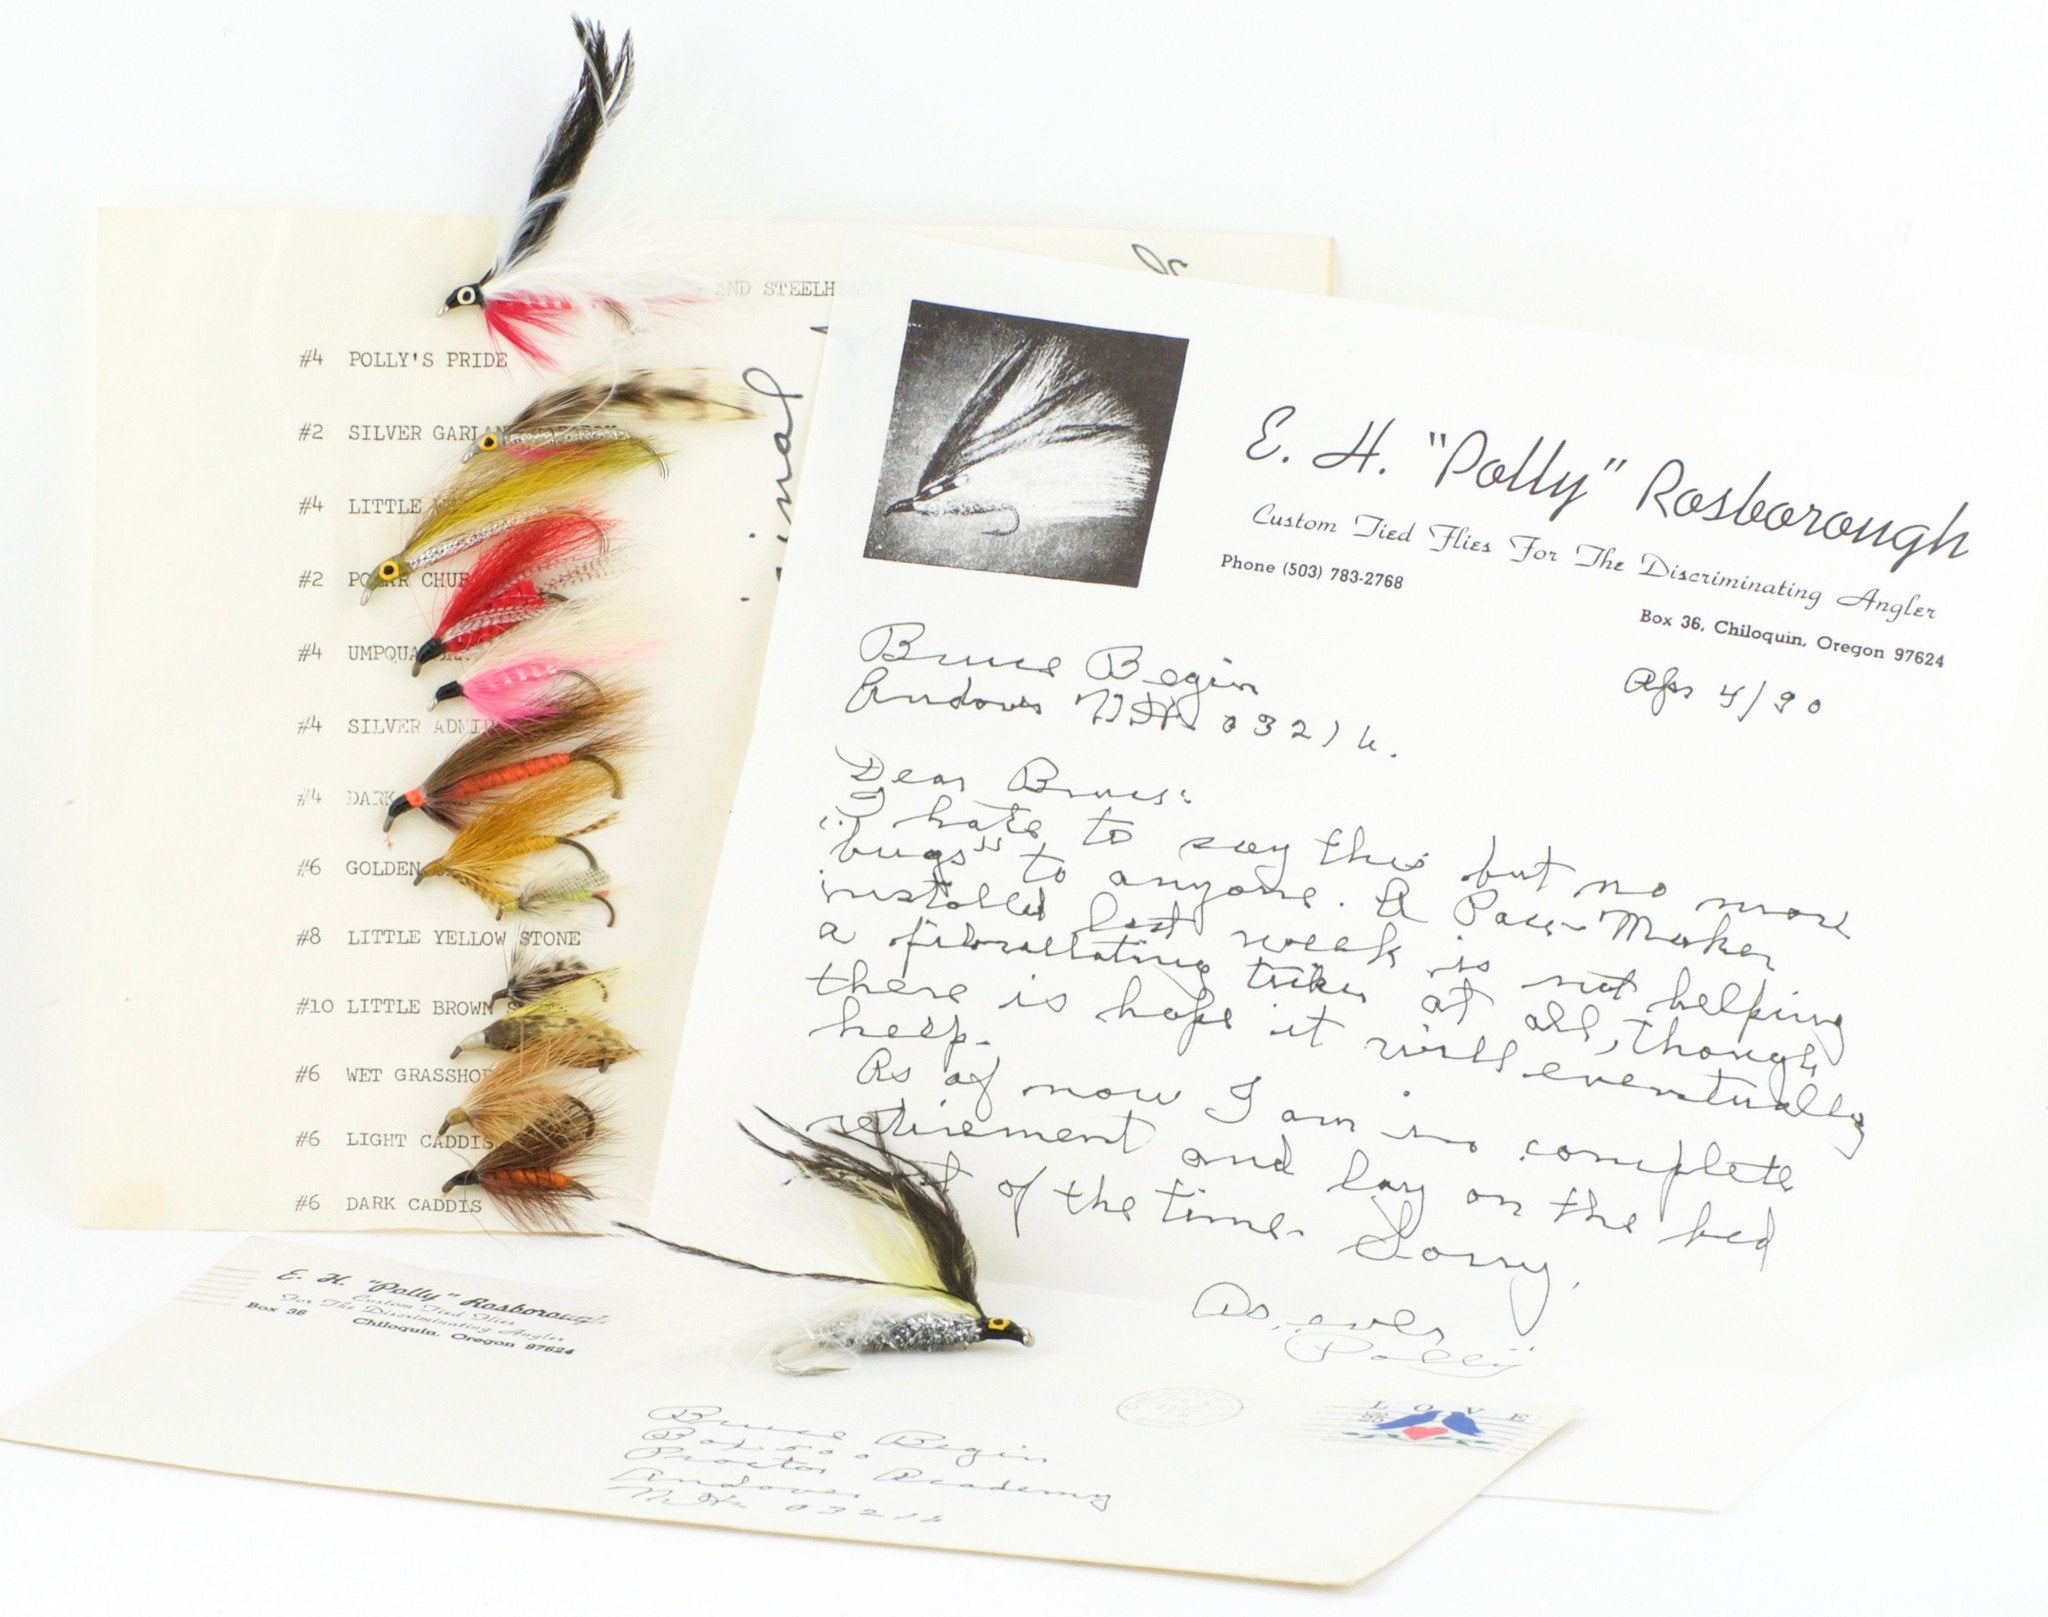 AND STEELHEADS
#4 POLLY'S PRIDE
#2 SILVER GARLAND
#4 LITTLE
#2 POLAR CHUB
#4 UMPQUA
#4 SILVER ADMIR
#4 DARK
#6 GOLDEN
#8 LITTLE YELLOW STONE
#10 LITTLE BROWN S
#6 WET GRASSHOP
#6 LIGHT CADDIS
#6 DARK CADDIS
E. H. "Polly" Rosborough
Custom Tied Flies For The Discriminating Angler
Phone (503) 783-2768
Box 36, Chiloquin, Oregon 97624
Apr 4/90
Bruce Begin
Andover N.H. 03216.
Dear Bruce:
I hate to say this but no more
"bugs" to anyone. A Pace-Maker
installed last week is not helping
a fibrillating ticker at all, though
there is hope it will eventually
help.
As of now I am in complete
retirement and lay on the bed
of the time. Sorry.
As ever
"Polly"
E. H. "Polly" Rosborough
Custom Tied Flies
For The Discriminating Angler
Box 36
Chiloquin, Oregon 97624
LOVE
Bruce Begin
Box 500
Proctor Academy
Andover
N.H. 03216